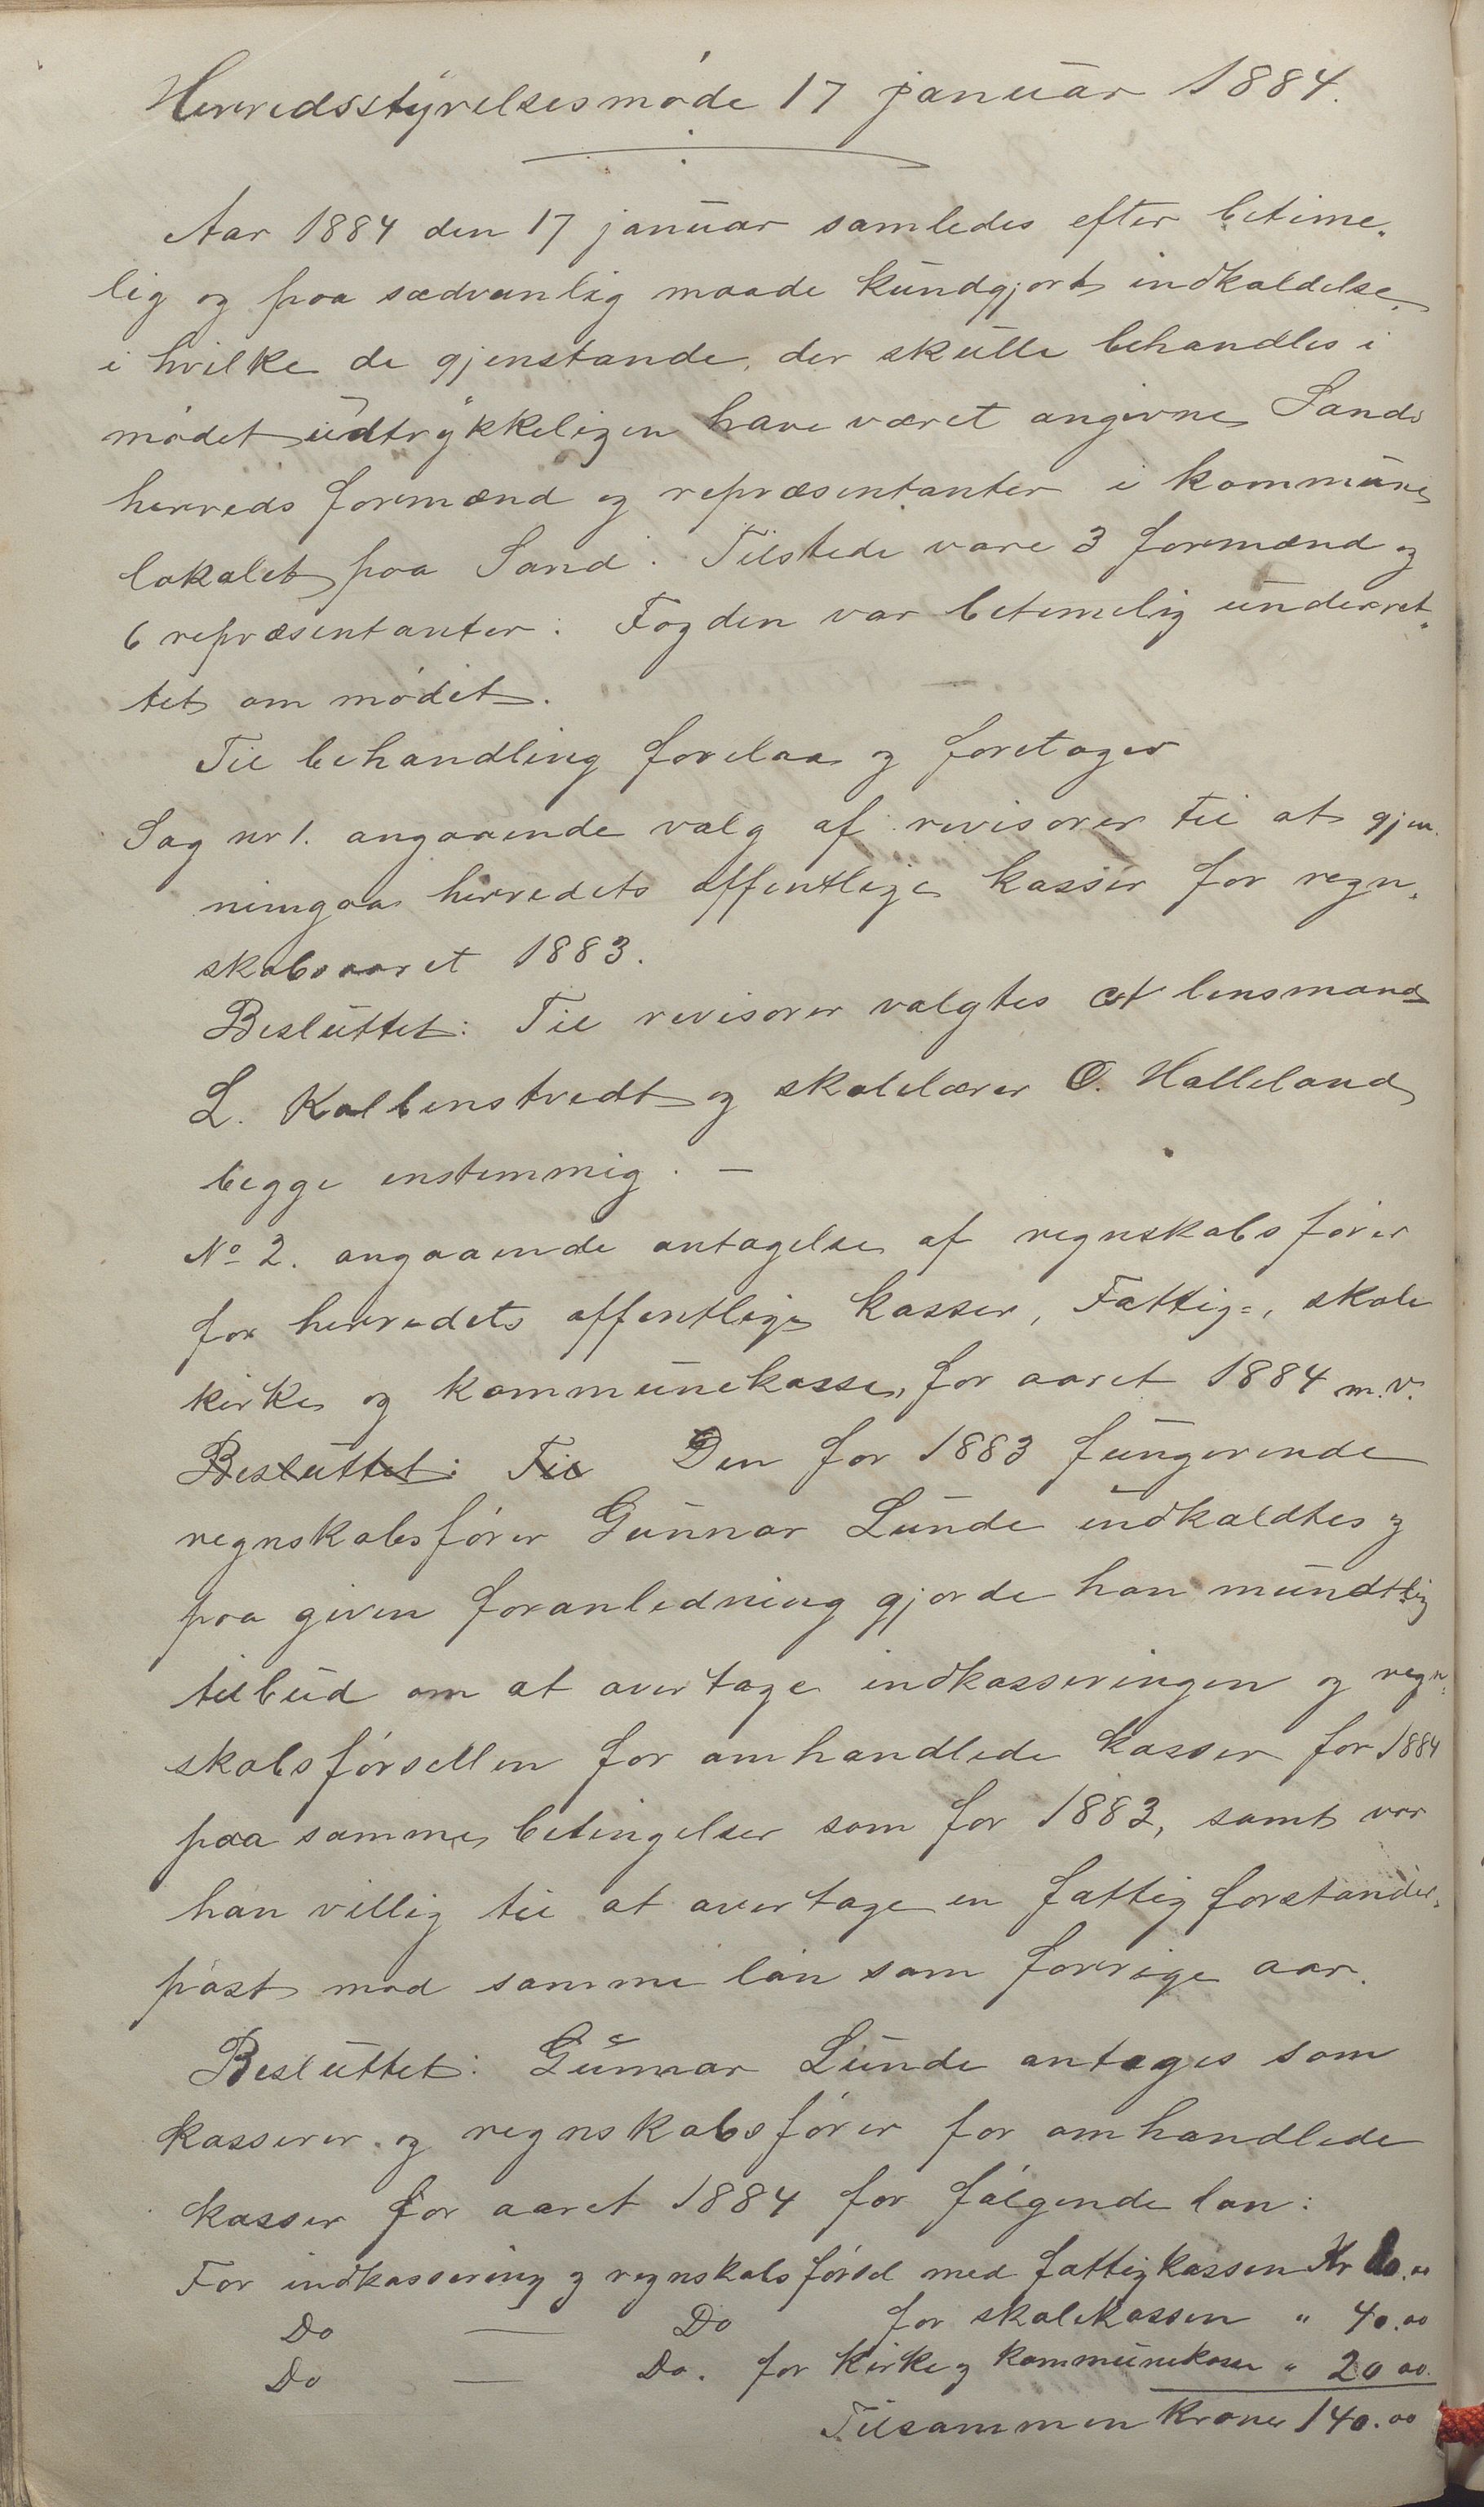 Herredsstyrelsesmøde 17 januar 1884.
Aar 1884 den 17 januar samledes efter betime-
lig og paa sædvanlig maade kundgjort indkaldelse
i hvilke de gjenstande, der skulle behandles i
mødet udtrykkeligen have været angivne Sands
herreds formænd og repræsentanter i kommune
lokalet paa Sand. Tilstede vare 3 formænd og
6 repræsentanter. Fogden var betimelig underret-
tet om mødet.
Til behandling forelaa og foretoges
Sag nr 1. angaaende valg af revisorer til at gjen-
nemgaa herredets offentlige kasser for regn-
skabsaaret 1883.
Besluttet: Til revisorer valgtes lensmand
L. Kolbenstvedt og skolelærer O. Halleland
begge enstemmig. —
No 2. angaaende antagelse af regnskabsfører
for herredets offentlige kasser, Fattig-, skole
kirke og kommunekasse, for aaret 1884 m.v.
Besluttet: Til Den for 1883 fungerende
regnskabsfører Gunnar Lunde indkaldtes og
paa given foranledning gjorde han mundtlig
tilbud om at overtage indkasseringen og regn-
skabsførsellen for omhandlede kasser for 1884
paa samme betingelser som for 1883, samt var
han villig til at overtage en fattigforstander-
post mod samme løn som forrige aar.
Besluttet: Gunnar Lunde antages som
kasserer og regnskabsfører for omhandlede
kasser for aaret 1884 for følgende løn:
For indkassering og regnskabsførsel med fattigkassen Kr 80.00
Do — Do for skolekassen " 40.00
Do — Do. for kirke og kommunekasse " 20 00.
Tilsammen Kroner 140.00